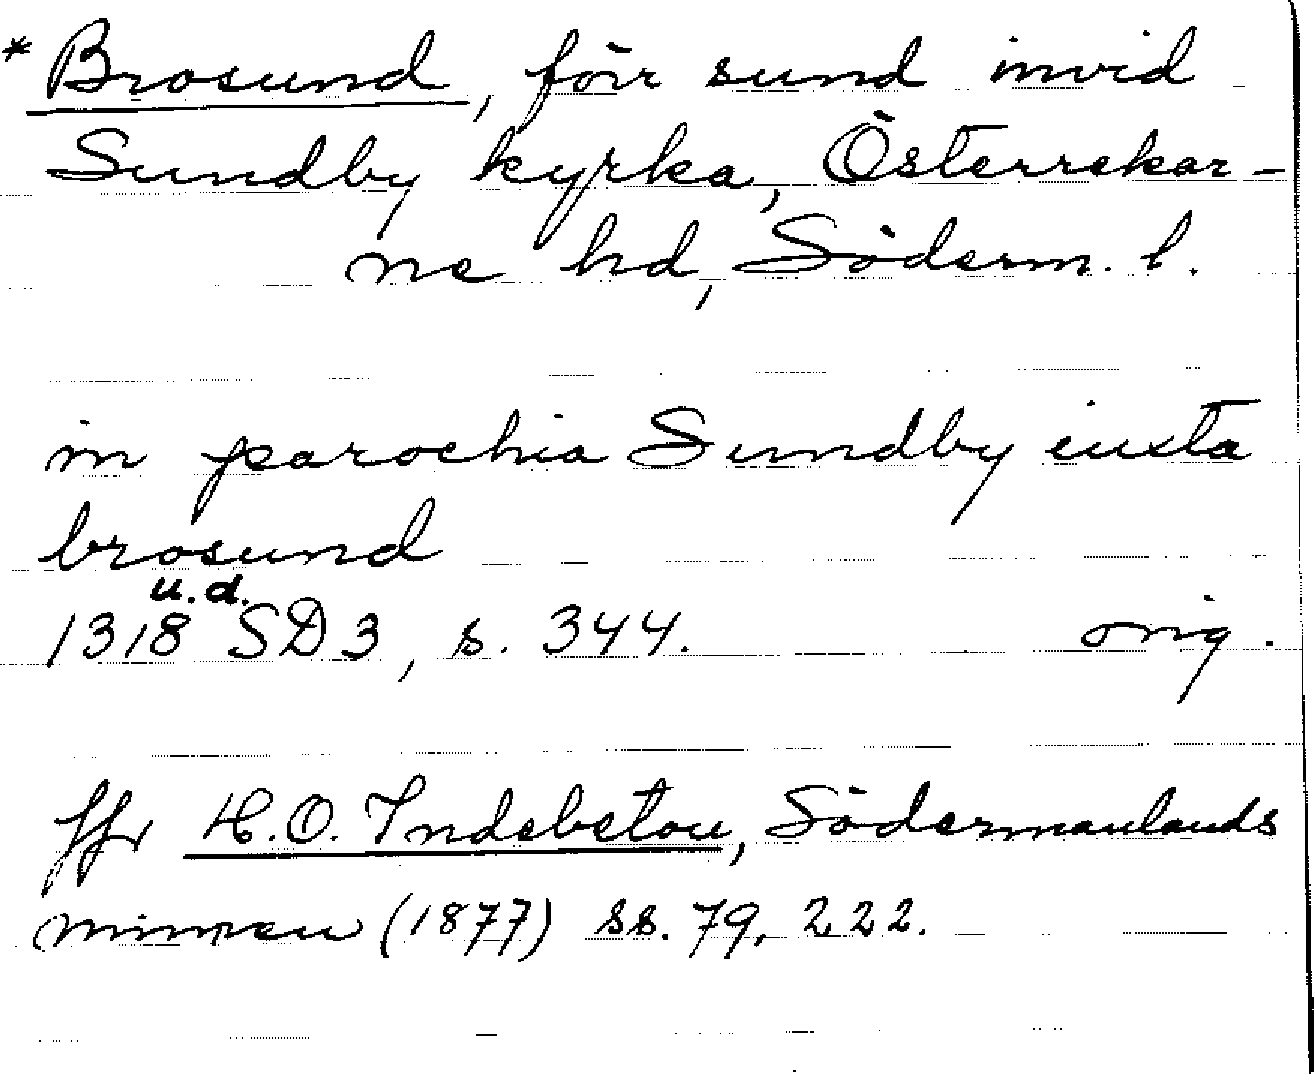 * Brosund, förr sund invid
Sundby kyrka, Österrekar-
ne hd, Söderm. l.
in parochia Sundby iusta
brosund
u.d.
1318 SD 3, s. 344. orig.
Jfr H.O. Indebetou, Södermanlands
minnen (1877) ss. 79, 222.